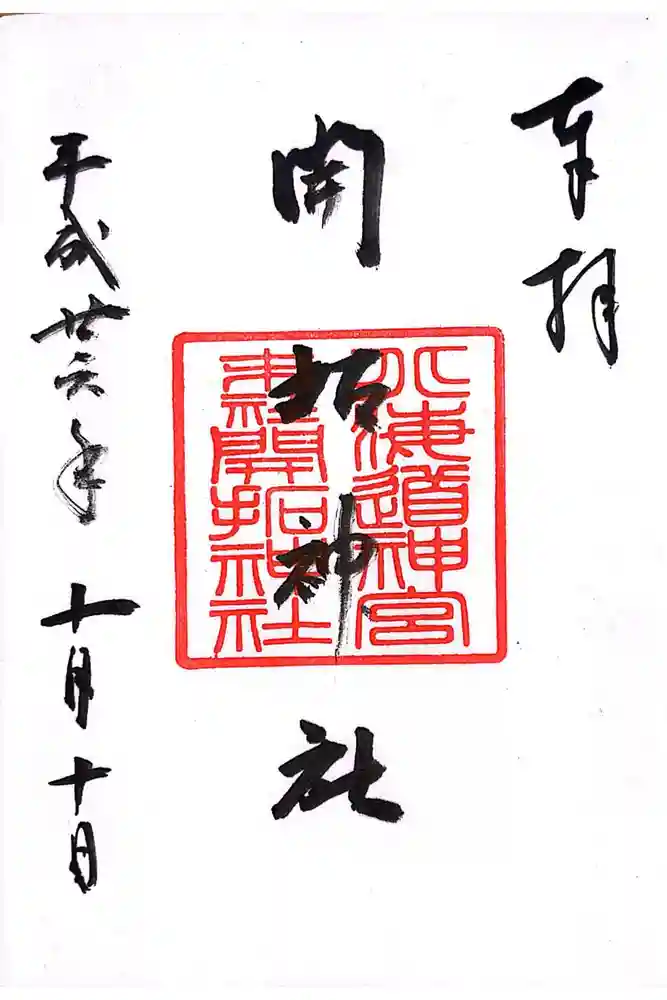 奉拝
開拓神社
北海道神宮
末社開拓神社
平成廿六年十月十日